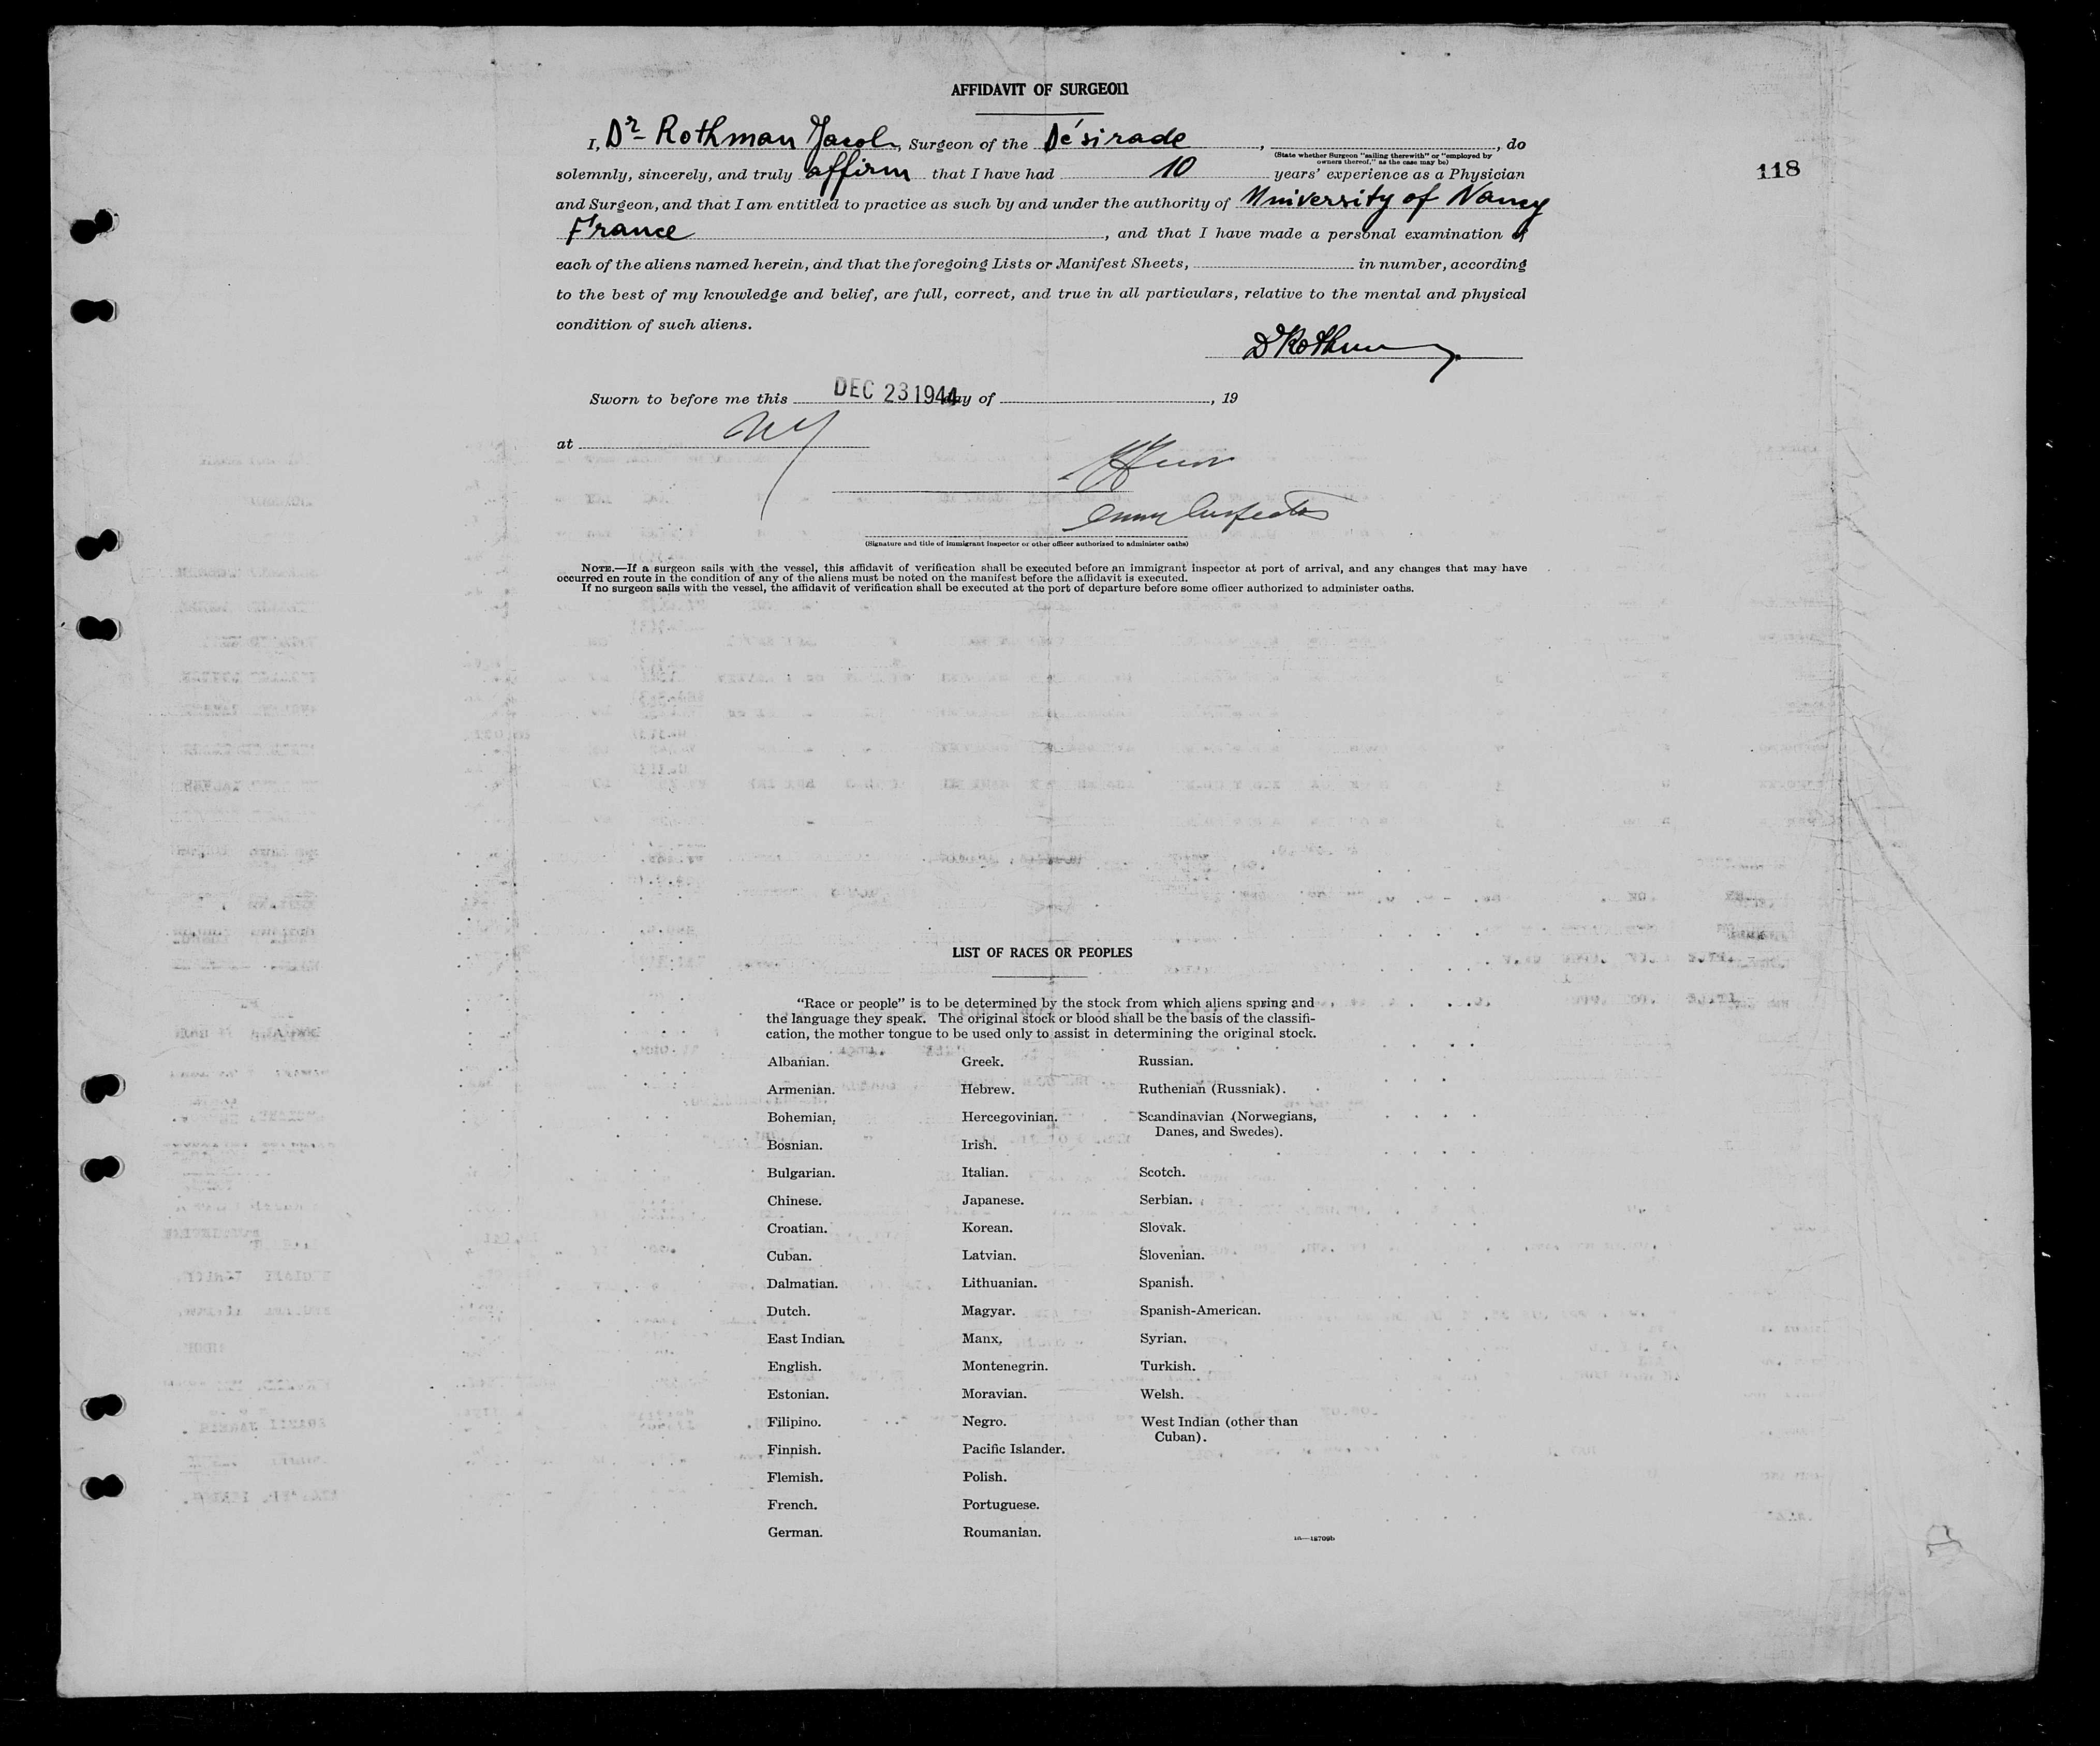 AFFIDAVIT OF SURGEON
118
I, Dr Rothman Jacob, Surgeon of the Désirade, , do
(State whether Surgeon "sailing therewith" or "employed by
owners thereof," as the case may be)
solemnly, sincerely, and truly affirm that I have had 10 years' experience as a Physician
and Surgeon, and that I am entitled to practice as such by and under the authority of University of Nancy
France, and that I have made a personal examination of
each of the aliens named herein, and that the foregoing Lists or Manifest Sheets, in number, according
to the best of my knowledge and belief, are full, correct, and true in all particulars, relative to the mental and physical
condition of such aliens.
Sworn to before me this DEC 23 1944 day of , 19
at NY
(Signature and title of immigrant inspector or other officer authorized to administer oaths)
NOTE.—If a surgeon sails with the vessel, this affidavit of verification shall be executed before an immigrant inspector at port of arrival, and any changes that may have
occurred en route in the condition of any of the aliens must be noted on the manifest before the affidavit is executed.
If no surgeon sails with the vessel, the affidavit of verification shall be executed at the port of departure before some officer authorized to administer oaths.
LIST OF RACES OR PEOPLES
"Race or people" is to be determined by the stock from which aliens spring and
the language they speak. The original stock or blood shall be the basis of the classifi-
cation, the mother tongue to be used only to assist in determining the original stock.
Albanian.
Armenian.
Bohemian.
Bosnian.
Bulgarian.
Chinese.
Croatian.
Cuban.
Dalmatian.
Dutch.
East Indian.
English.
Estonian.
Filipino.
Finnish.
Flemish.
French.
German.
Greek.
Hebrew.
Hercegovinian.
Irish.
Italian.
Japanese.
Korean.
Latvian.
Lithuanian.
Magyar.
Manx.
Montenegrin.
Moravian.
Negro.
Pacific Islander.
Polish.
Portuguese.
Roumanian.
Russian.
Ruthenian (Russniak).
Scandinavian (Norwegians,
Danes, and Swedes).
Scotch.
Serbian.
Slovak.
Slovenian.
Spanish.
Spanish-American.
Syrian.
Turkish.
Welsh.
West Indian (other than
Cuban).